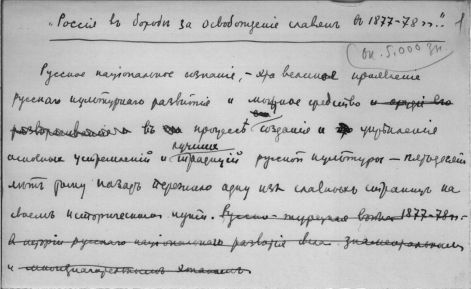 "Россія въ борьбѣ за освобожденіе славянъ въ 1877-78 гг." 1
ок. 5.000 зн.
Русское національное сознаніе, - это великое проявленіе
русскаго культурнаго развитія и мощное средство
въ процессѣ созданія и укрѣпленія
основныхъ устремленій и лучшихъ традицій русской культуры - пятьдесятъ
лѣтъ тому назадъ пережило одну изъ славныхъ страницъ на
своемъ историческомъ пути. Русско-турецкая война 1877-78 гг.
въ исторіи русскаго національнаго развитія была знаменательнымъ
и многозначительнымъ этапомъ